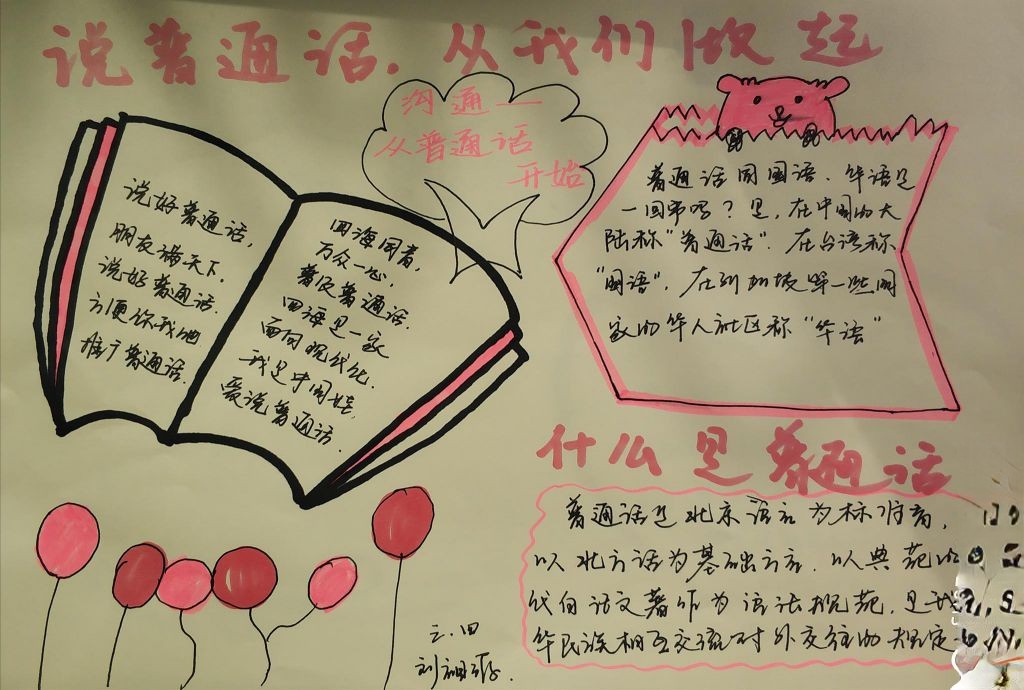 说普通话.从我们做起
沟通一
从普通话
开始
说好普通话,
朋友满天下.
说好普通话.
方便你我他
推广普通话.
四海同音,
万众一心,
普及普通话.
四海是一家
面向现代化.
我是中国娃,
爱说普通话.
普通话同国语、华语是
一回事吗?是,在中国的大
陆称“普通话”.在台湾称
“国语”,在新加坡等一些国
家的华人社区称“华语”
什么是普通话
普通话是北京语言为标准音,
以北方话为基础方言.以典范的
代白话文著作为语法规范,是我
华民族相互交流对外交往的规定
三.四
刘